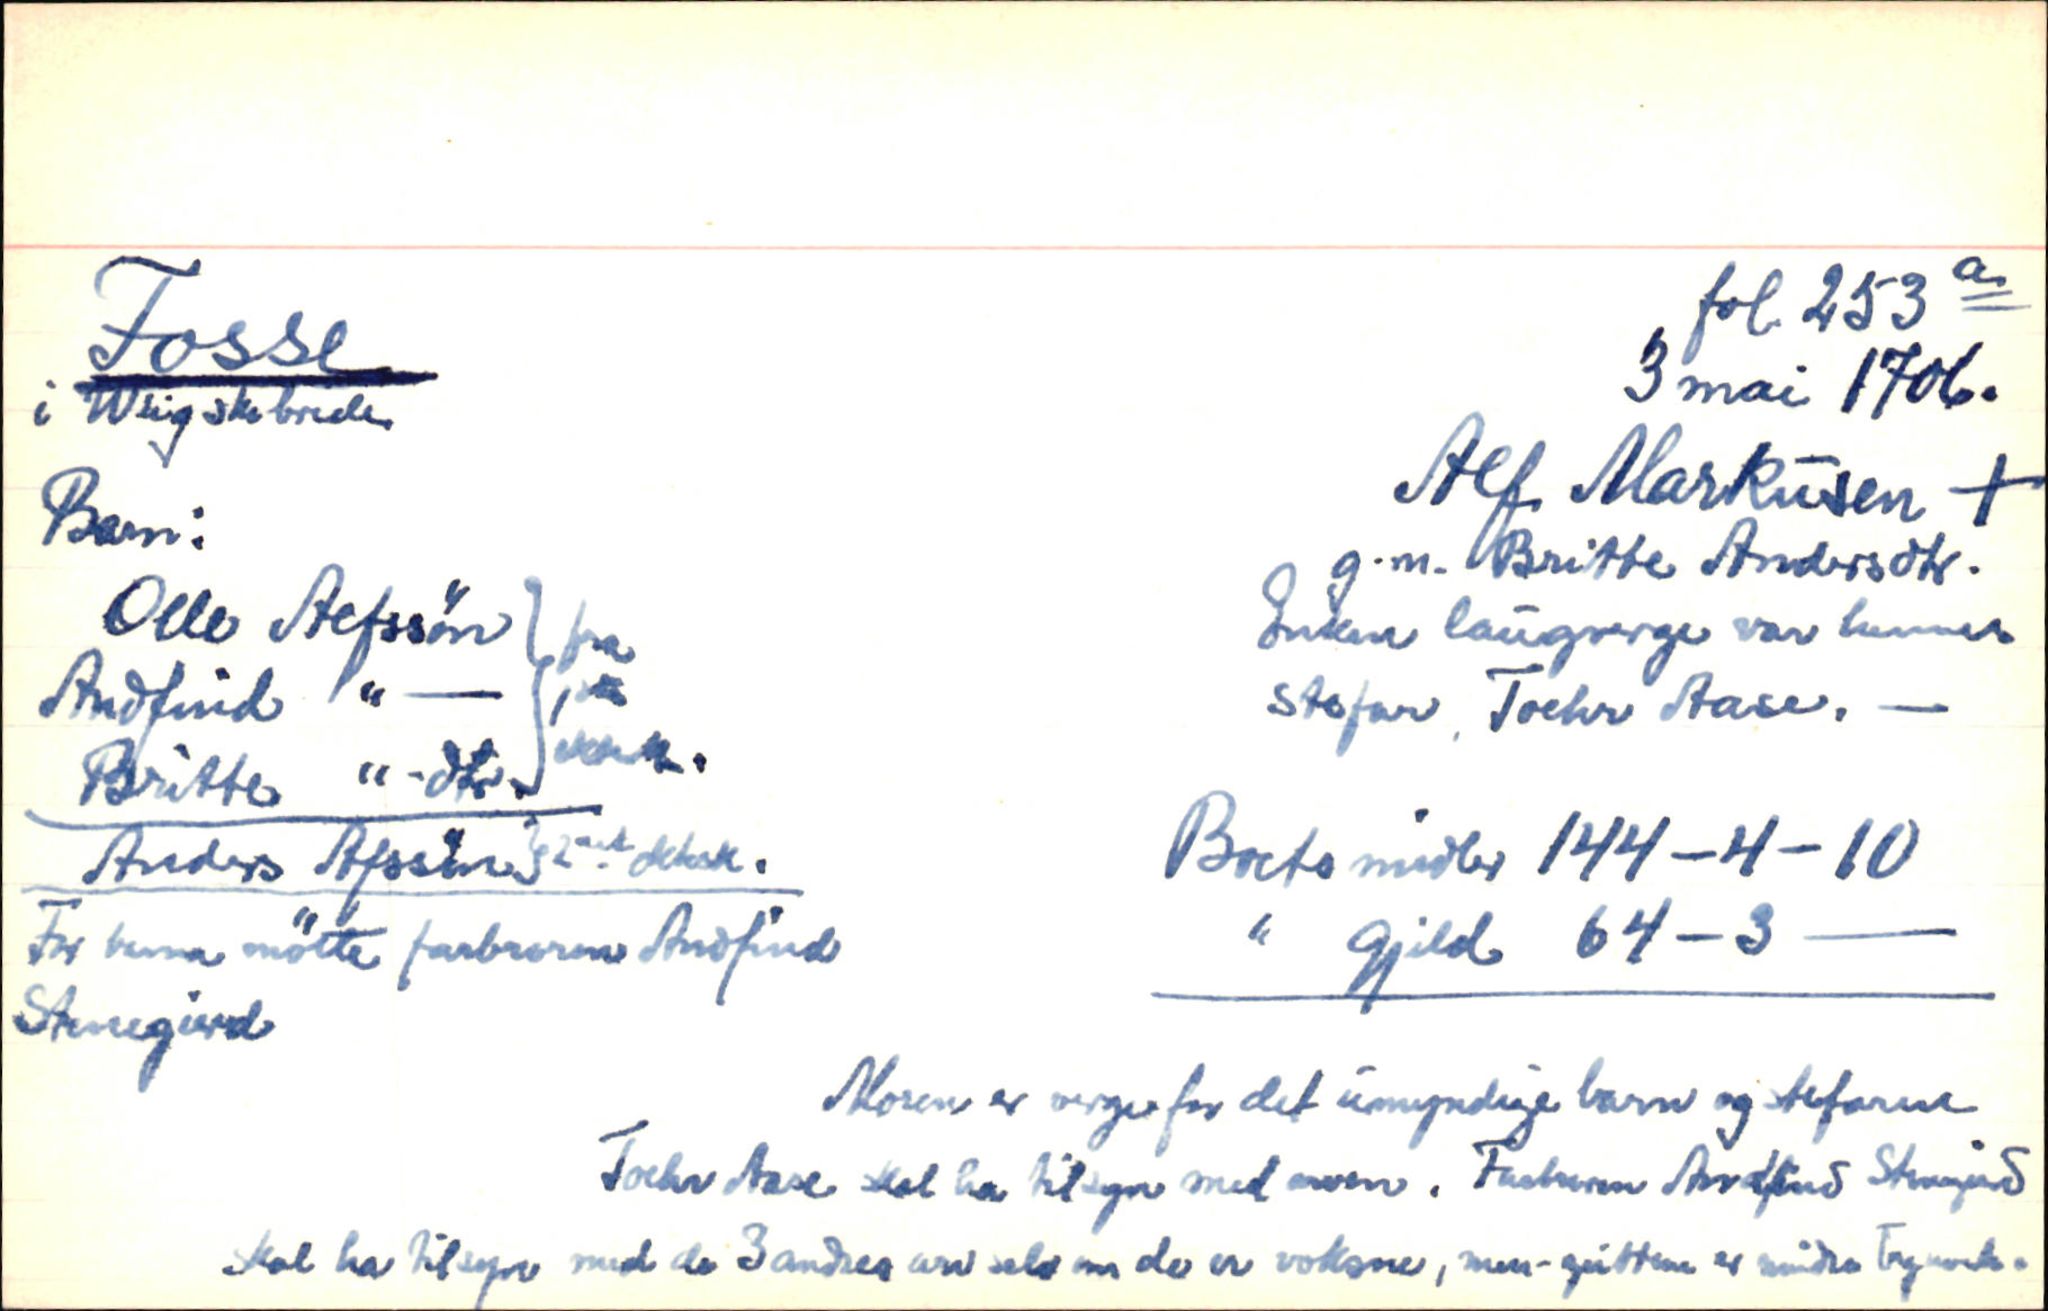 Fosse
i Wiigskebrede
fol. 253 a
3 mai 1706.
Alf Markūsen +
g.m. Britte Andersdtr.
Enken laūgverge var hennes
stefar, Toehr Aase. —
Barn:
Olle Alfssön } fra
Andfind " — } 1ste
Britte " -dtr. } ektesk.
Anders Afssön } 2net ektesk.
For henna mötte farbroren Andfind
Stenegierd
Boets midler 144 – 4 – 10
" Gjild 64 – 3 —
Moren er verge for det ūmyndige barn og stefaren
Toehr Aase skal ha tilsyn med arven. Farbroren Andfind Stenegierd
skal ha tilsyn med de 3 andres arv selv om de er voksne, men guttene er mindre